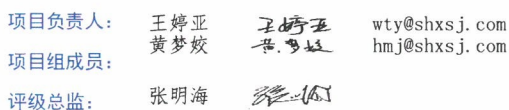 项目负责人： 王婷亚 王婷亚 wty@shxsj.com
黄梦姣 黄梦姣 hmj@shxsj.com
项目组成员：
评级总监： 张明海 张明海